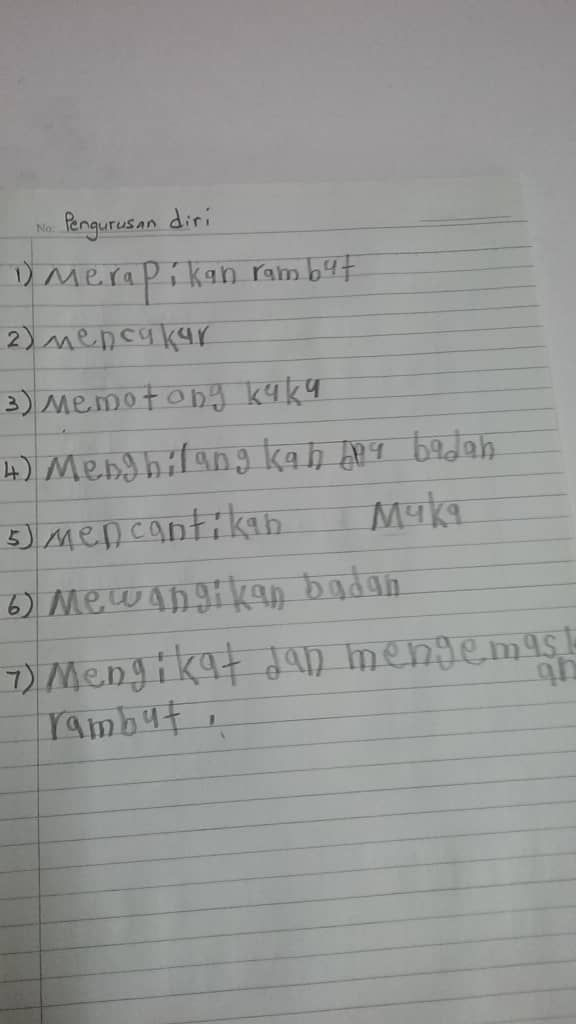 No. Pengurusan diri
1) Merapikan rambut
2) Mencukur
3) Memotong kuku
4) Menghilangkan bau badan
5) Mencantikan Muka
6) Mewangikan badan
7) Mengikat dan mengemask
an
rambut.